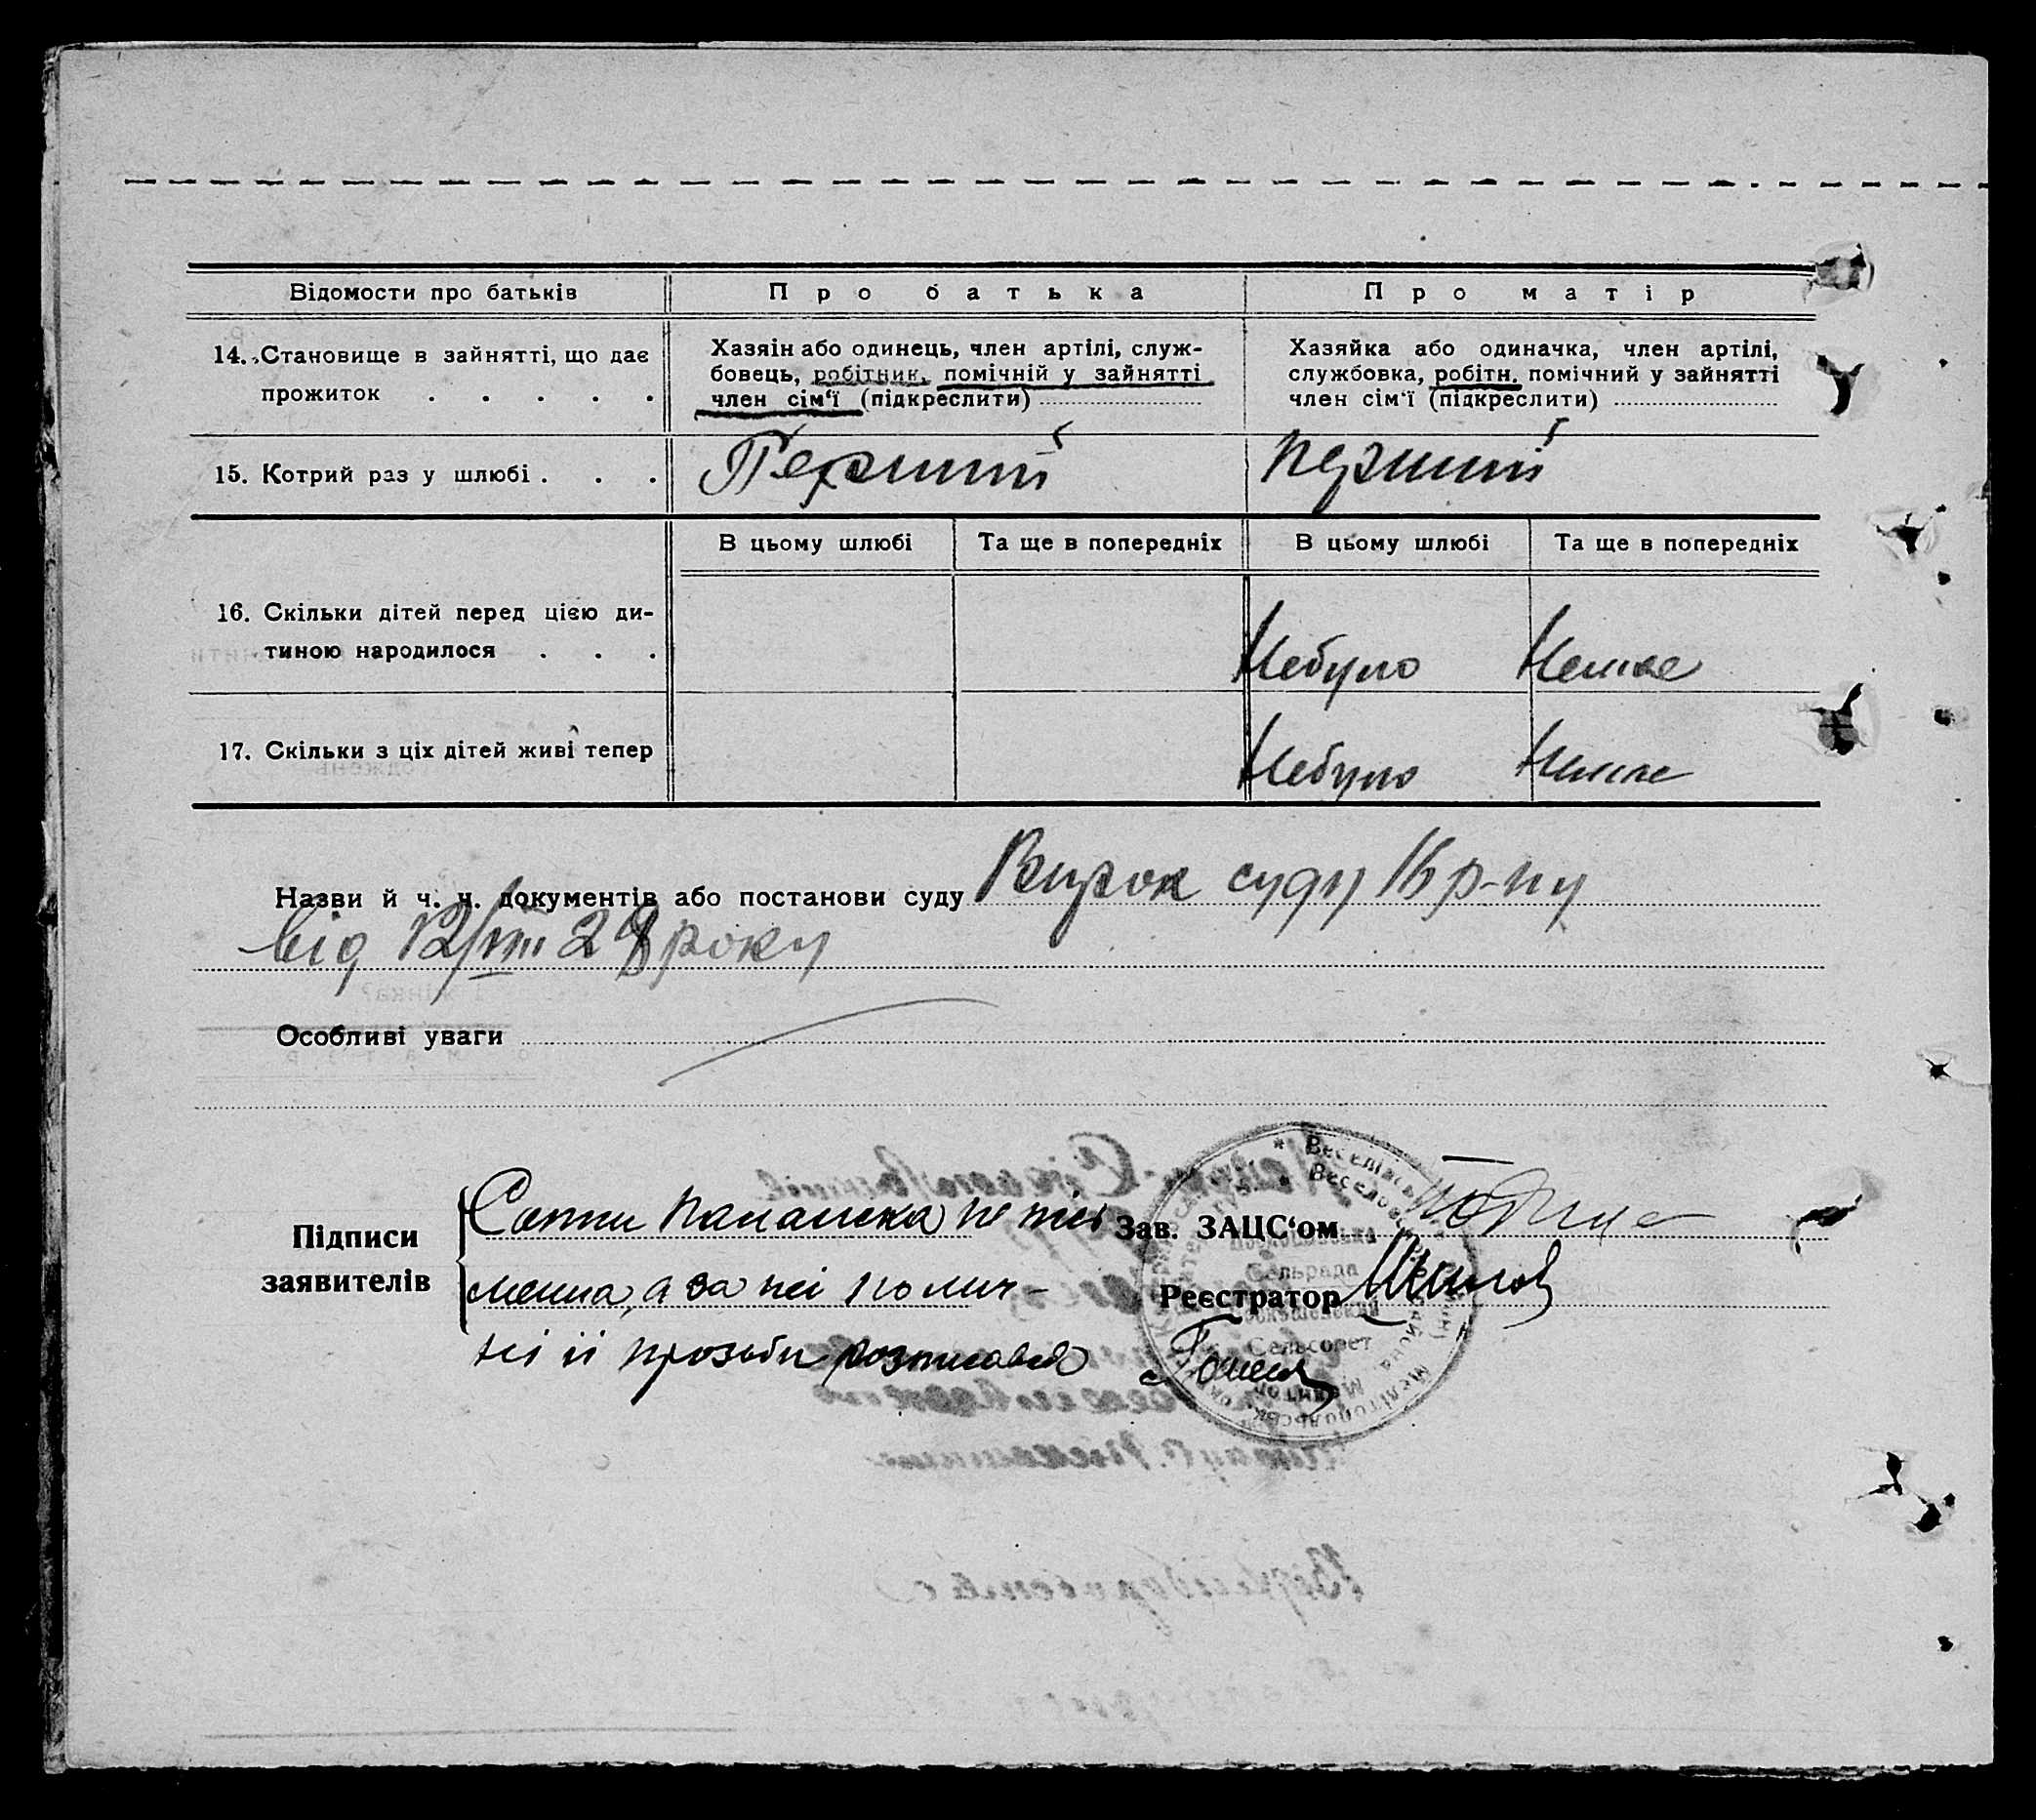 Відомости про батьків
Про батька
Про матір
14. Становище в зайнятті, що дає
прожиток . . . . .
Хазяін або одинець, член артілі, служ-
бовець, робітник, помічній у зайнятті
член сім‘ї (підкреслити)
Хазяйка або одиначка, член артілі,
службовка, робітн. помічний у зайнятті
член сім‘ї (підкреслити)
15. Котрий раз у шлюбі . . .
Перший
перший
В цьому шлюбі
Та ще в попередніх
В цьому шлюбі
Та ще в попередніх
16. Скільки дітей перед цією ди-
тиною народилося . . .
Небуло
Немае
17. Скільки з ціх дітей живі тепер
Небуло
Немае
Назви й ч. ч. документів або постанови суду Вирок суду 16 р-ну
від 12/VIII 28 року
Особливі уваги
Підписи
заявителів
не пись
менна, а за неі по лич-
ніі іі прозьби розписався
Зав. ЗАЦС‘ом
Реєстратор
Сельрада
Сельсовет